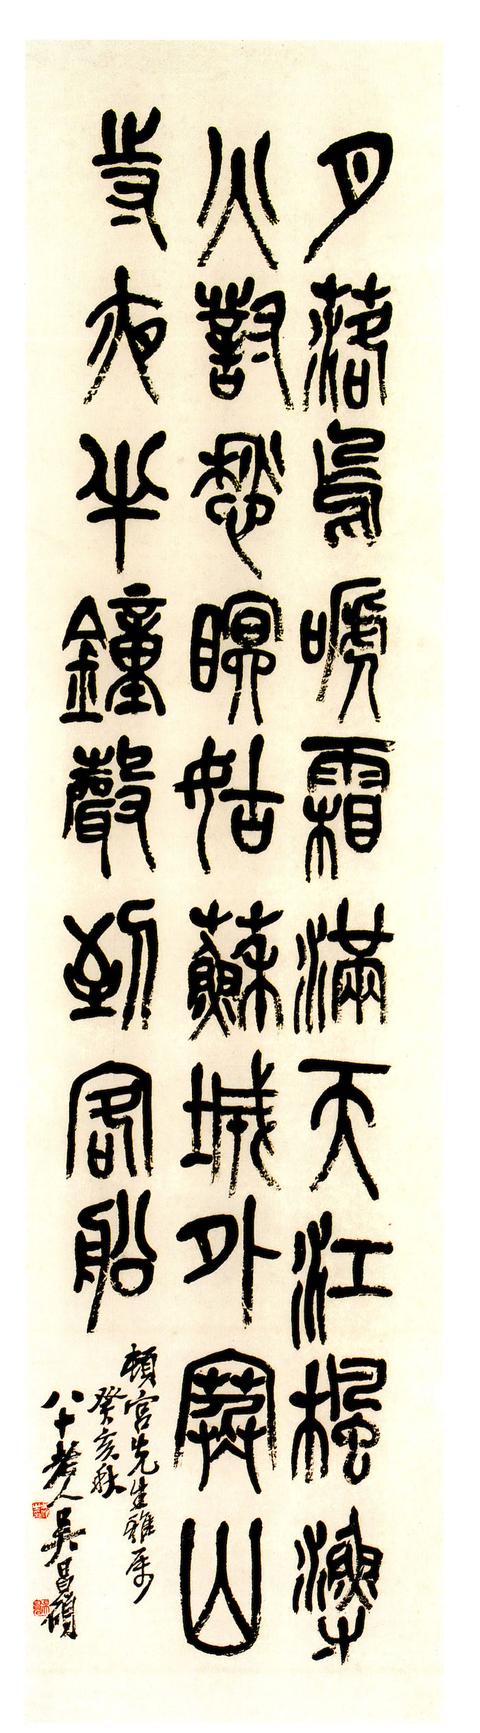 月落烏嗁霜滿天江楓漁
火對愁眠姑蘇城外寒山
寺夜半鐘聲到客船
頓宮先生雅属
癸亥秋
八十老人吳昌碩